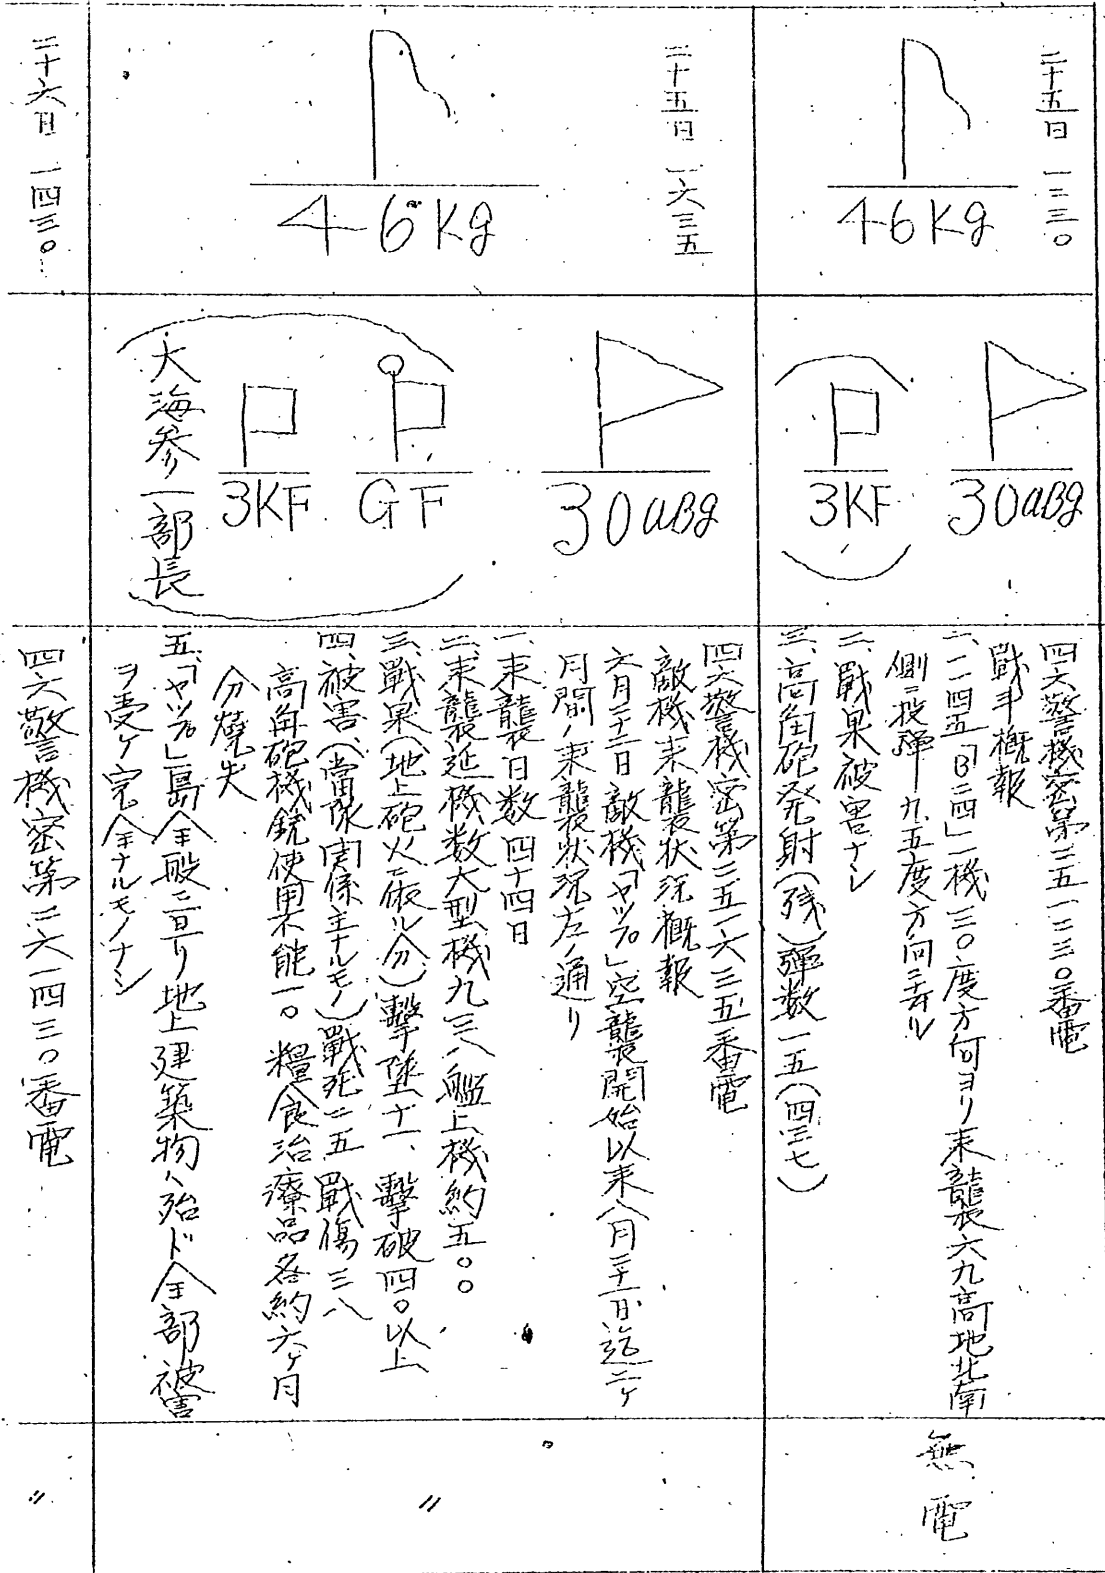 二十五日 一三三〇
46Kg
30aBg
3KF
四六警機密第二五一三三〇番電
戰斗概報
一、一一四五「B二四」一機三〇度方向ヨリ来襲六九高地北南
側ニ投彈一九五度方向ニ去ル
二、戰果被害ナシ
三、高角砲発射(残)彈数一五(四三七)
無電
二十五日 一六三五
46Kg
30aBg
GF
3KF
大海参一部長
四六警機密第二五一六三五番電
敵機来襲状況概報
六月二十二日敵機「ヤップ」空襲開始以来八月二十二日迄二ヶ
月間ノ来襲状況左ノ通リ
一、来襲日数四十四日
二、来襲延機数大型機九三八艦上機約五〇〇
三、戰果(地上砲火ニ依ル分)擊墜十一、擊破四〇以上
四、被害(當隊関係主ナルモノ)戰死二五 戰傷三八
高角砲機銃使用不能一〇 糧食治療品各約六ヶ月
分燒失
五、「ヤップ」島全般ニ亘リ地上建築物ハ殆ド全部被害
ヲ受ケ完全ナルモノナシ
〃
二十六日 一四三〇
四六警機密第二六一四三〇番電
〃